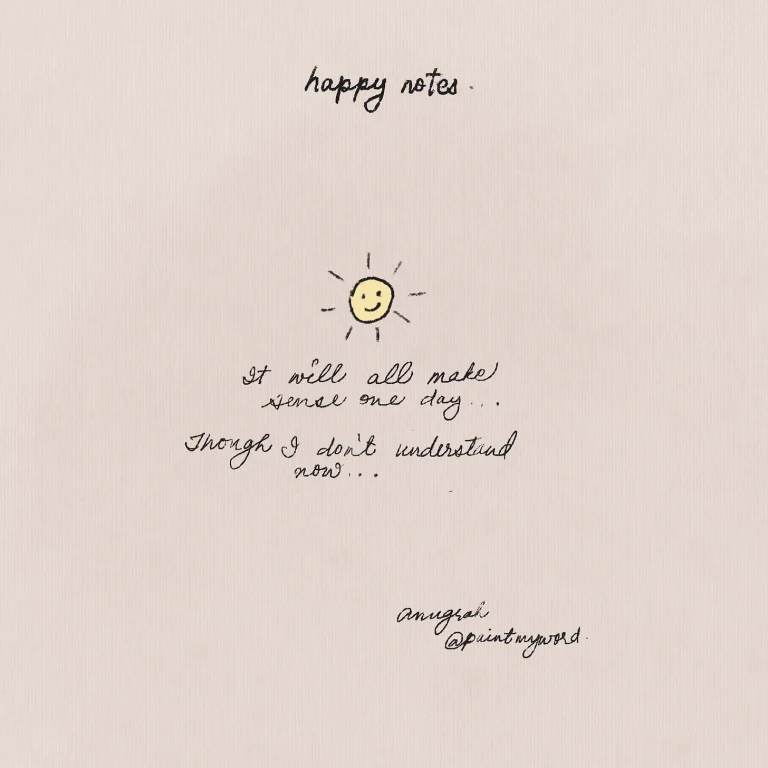 happy notes.
It will all make
sense one day...
Though I don't understand
now...
anugrah
@paintmyword.